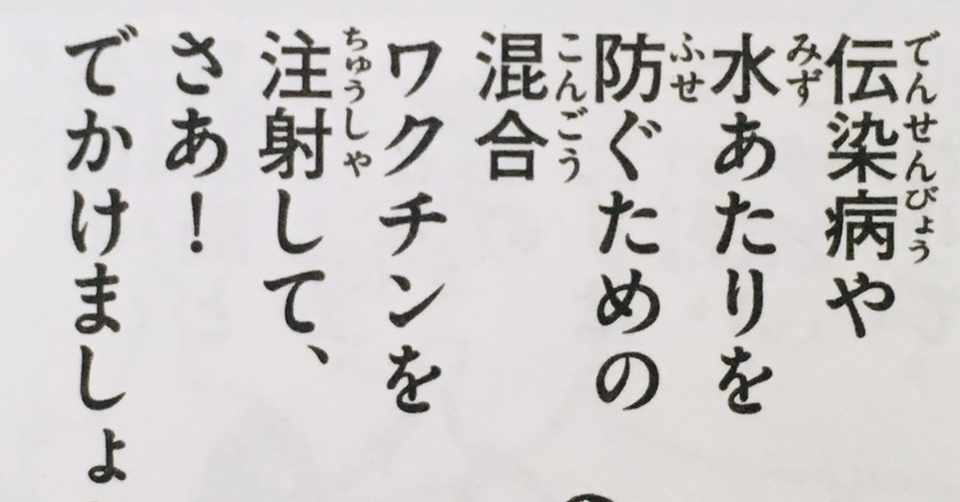 伝染病や
水あたりを
防ぐための
混合
ワクチンを
注射して、
さあ！
でかけましょ
でんせんびょう
みず
ふせ
こんごう
ちゅうしゃ